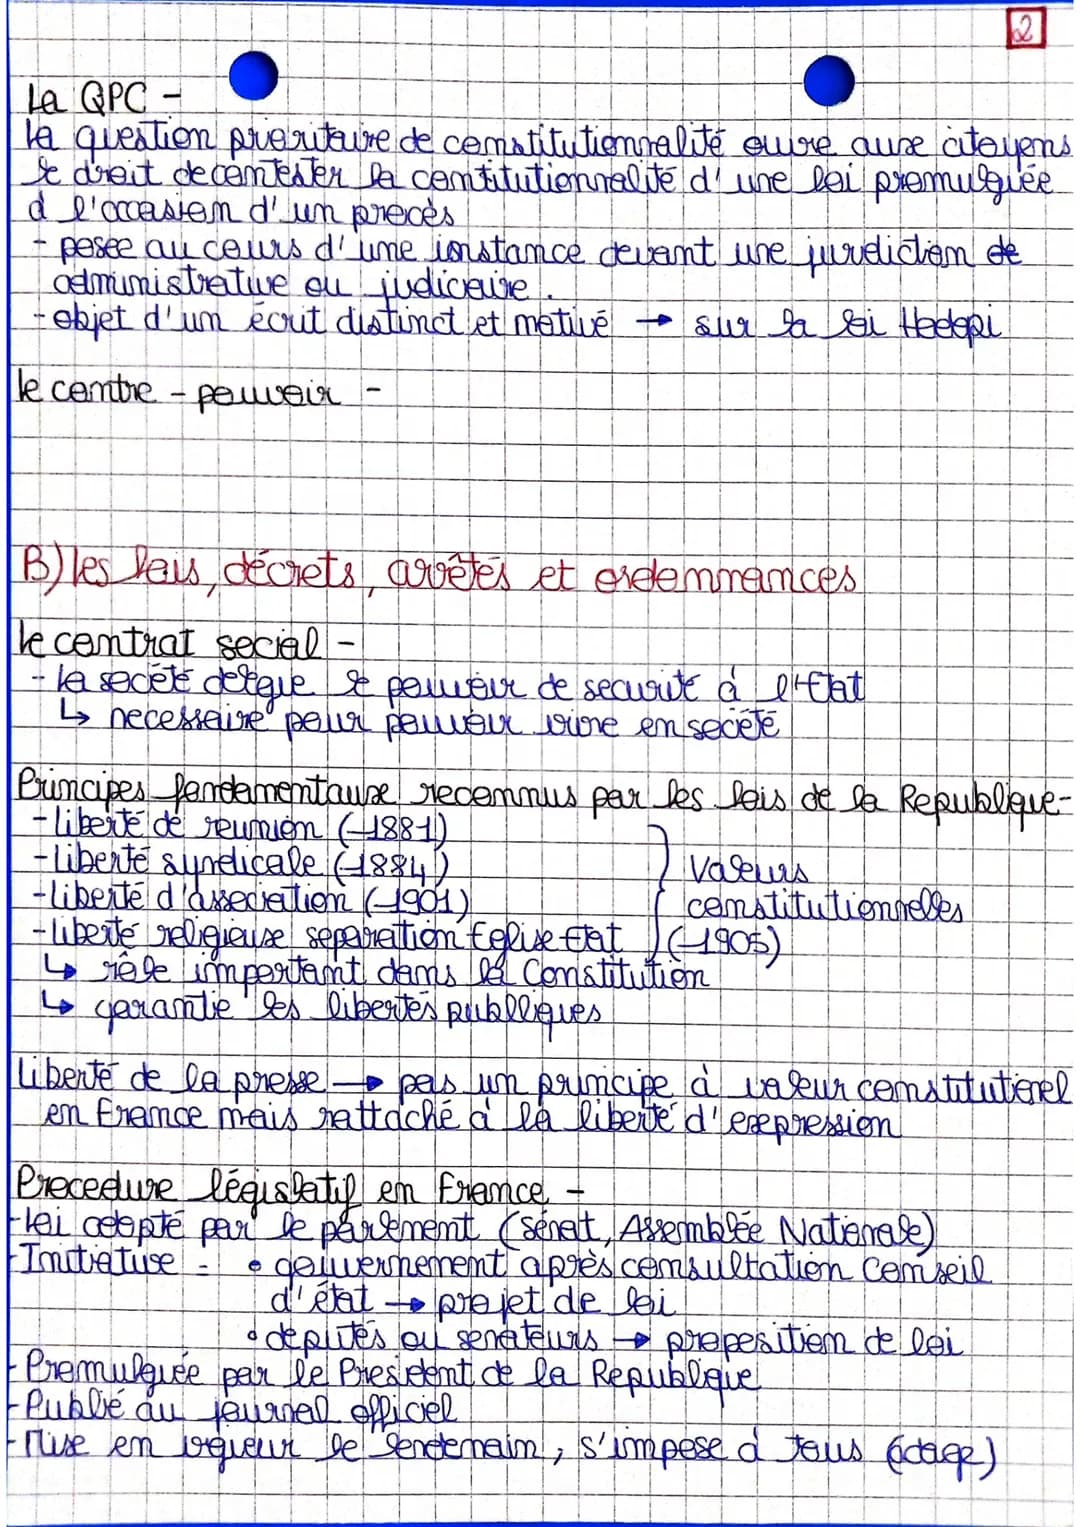 2
La QPC -
La question prioritaire de constitutionnalité ouvre aux citoyens
le droit de contester la contitutionnalité d'une loi promulguée
à l'occasion d'un procès
- posée au cours d'une instance devant une juridiction de
administrative ou judiciaire.
- objet d'un écrit distinct et motivé → sur la loi Hadopi
le contre - pouvoir -
B) les lois, décrets, arrêtés et ordonnances
le contrat social -
- la société délègue le pouvoir de securité à l'Etat
↳ necessaire pour pouvoir vivre en société
Principes fondamentaux reconnus par les lois de la Republique-
- liberté de reunion (-1881)
- liberté syndicale (-1884)
- liberté d'association (-1901)
- liberté religieuse separation Eglise Etat (-1905)
Valeurs
constitutionnelles
↳ rôle important dans la Constitution
↳ garantie les libertés publliques
Liberté de la presse → pas un principe à valeur constitutionel
en France mais rattaché à la liberté d'expression
Procedure législatif en France -
- loi adopté par le parlement (sénat, Assemblée Nationale)
- Initiative - • gouvernement après consultation conseil
d'état → projet de loi
• deputés ou senateurs → proposition de loi
- Promulguée par le President de la Republique
- Publié au journal officiel
- Mise en vigueur le lendemain, s'impose à tous (adage)